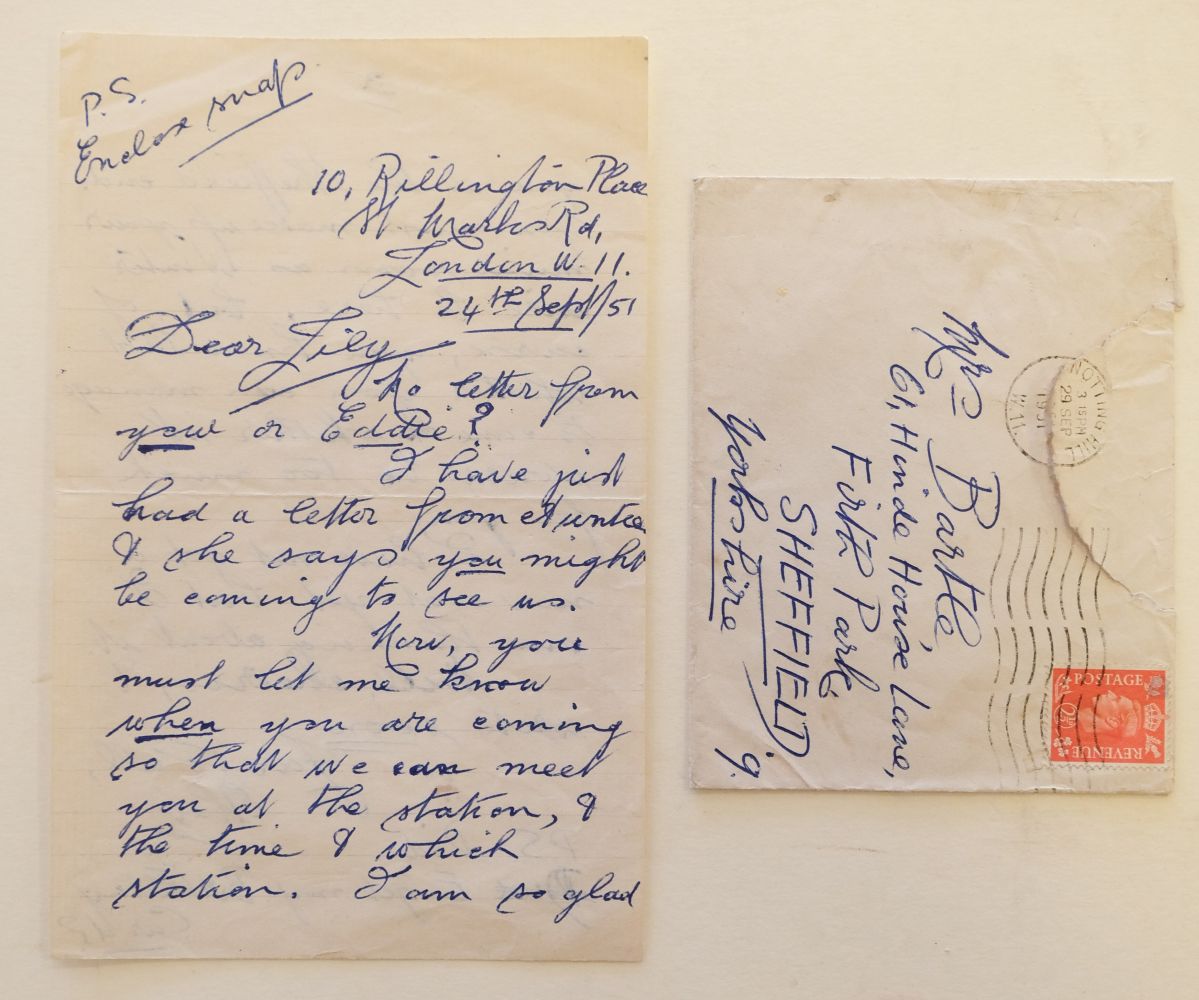 P.S.
Enclose snap
10, Rillington Place
St Marks Rd,
London W. 11.
24th Sept/51
Dear Lily
No letter from
you or Eddie?
I have just
had a letter from Auntie
& she says you might
be coming to see us.
Now, you
must let me know
when you are coming
so that we can meet
you at the station, &
the time & which
station. I am so glad
Mrs Bartle,
61, Hinde House Lane,
Firth Park,
SHEFFIELD
Yorkshire
9.
NOTTING HILL
3 15PM
29 SEP
1951
W.11
POSTAGE
2½D
REVENUE